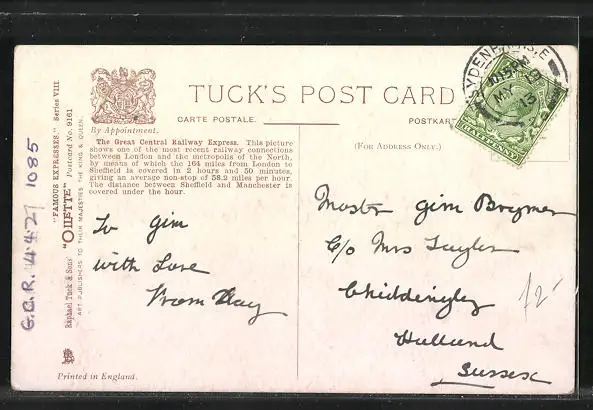 TUCK'S POST CARD
CARTE POSTALE.
POSTKART
(FOR ADDRESS ONLY.)
By Appointment.
The Great Central Railway Express. This picture
shows one of the most recent railway connections
between London and the metropolis of the North,
by means of which the 164 miles from London to
Sheffield is covered in 2 hours and 50 minutes,
giving an average non-stop of 58.2 miles per hour.
The distance between Sheffield and Manchester is
covered under the hour.
"FAMOUS EXPRESSES." Series VIII.
Raphael Tuck & Sons' "OILETTE" Postcard No. 9161
ART PUBLISHERS TO THEIR MAJESTIES THE KING & QUEEN.
G.C.R. 4-4-2T 1085
To Jim
with Love
From Day
Master Jim Brymer
C/o Mrs Taylor
Chiddingly
Holland
Sussex
f2-
MY 13
Printed in England.